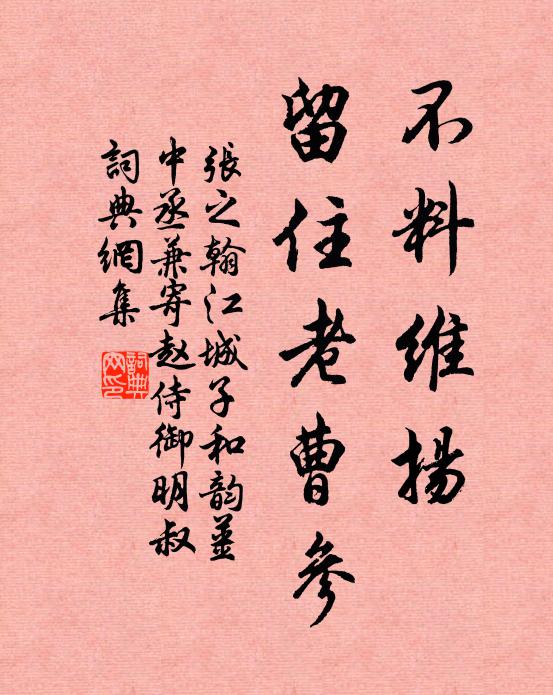 不料維揚
留住老曹參
張之翰江城子和韵姜
中丞兼寄赵侍御明叔
詞典網集
詞典
网印